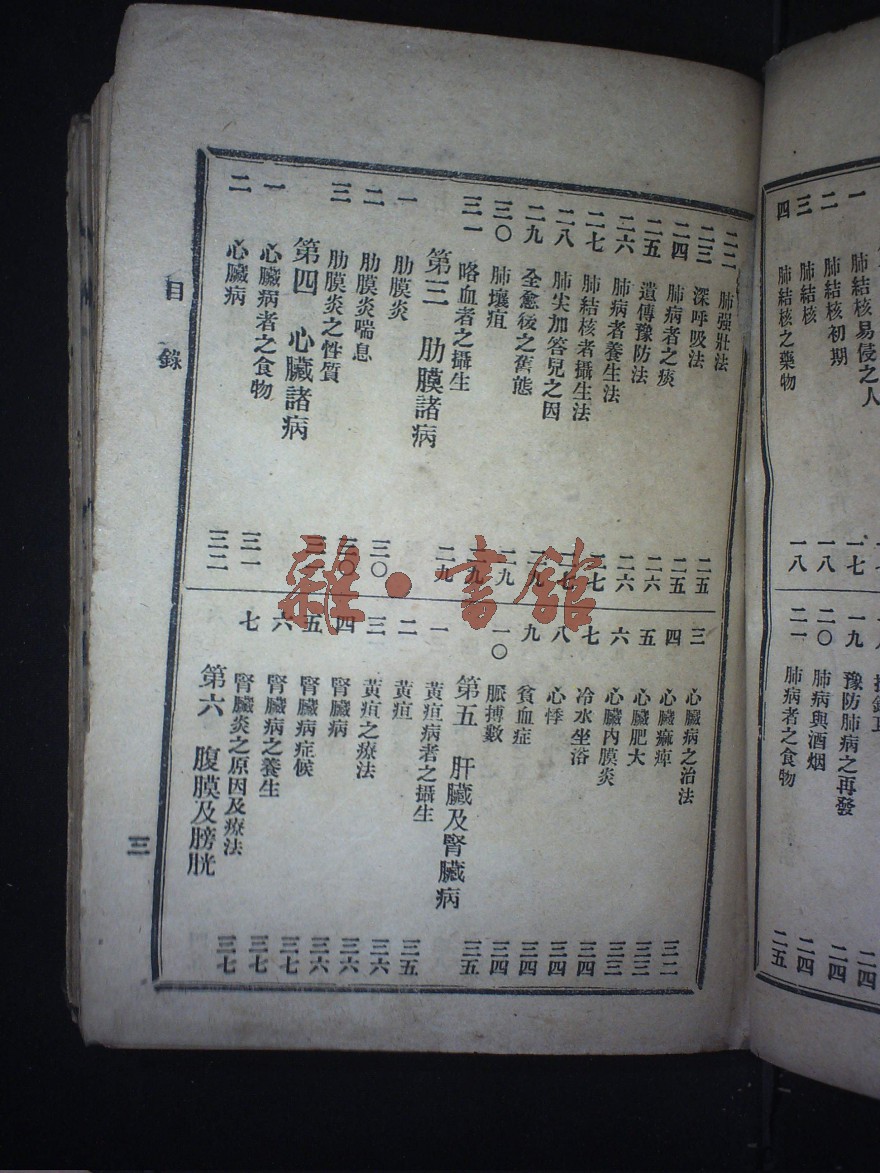 一 肺結核易侵之人 一七
二 肺結核初期 一七
三 肺結核 一八
四 肺結核之藥物 一八
一九 豫防肺病之再發 二四
二〇 肺病與酒烟 二四
二一 肺病者之食物 二五
二二 肺强壯法 二五
二三 深呼吸法 二五
二四 肺病者之痰 二六
二五 遺傳豫防法 二六
二六 肺病者養生法 二七
二七 肺結核者攝生法 二七
二八 肺尖加答兒之因 二九
二九 全愈後之舊態 二九
三〇 肺壤疽 二九
三一 咯血者之攝生 二九
第三 肋膜諸病
一 肋膜炎 三〇
二 肋膜炎喘息 三〇
三 肋膜炎之性質 三一
第四 心臟諸病
一 心臟病者之食物 三一
二 心臟病 三二
三 心臟病之治法 三二
四 心臟痲痺 三三
五 心臟肥大 三三
六 心臟內膜炎 三四
七 冷水坐浴 三四
八 心悸 三四
九 貧血症 三四
一〇 脈搏數 三五
第五 肝臟及腎臟病
一 黃疸病者之攝生 三五
二 黃疸 三六
三 黃疸之療法 三六
四 腎臟病 三六
五 腎臟病症候 三七
六 腎臟病之養生 三七
七 腎臟炎之原因及療法 三七
第六 腹膜及膀胱
目錄
三
雜·書館